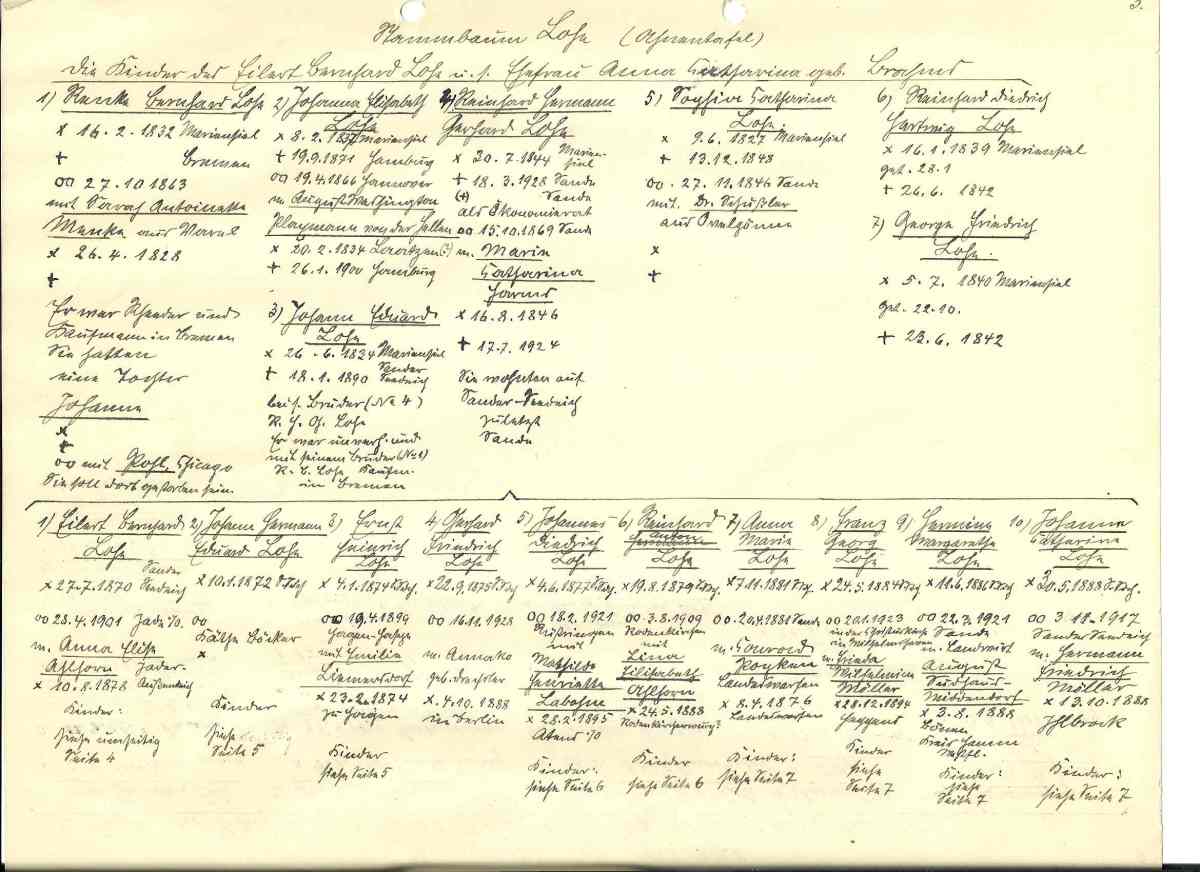 3.
Stammbaum Lohe (Ahnentafel)
Die Kinder des Eilert Bernhard Lohe u. s. Ehefrau Anna Catharina geb. Brahms
1) Renke Bernhard Lohe
x 16.2.1832 Mariensiel
+ Bremen
oo 27.10 1863
mit Sarah Antoinette
Menke aus Varel
x 26.4.1828
+
Er war Rheeder und
Kaufmann in Bremen
Sie hatten
eine Tochter
Johanne
x
+
oo mit Pohl, Chicago
Sie soll dort gestorben sein.
2) Johanna Elisabeth
Lohe
x 8.2.1837 Mariensiel
+ 19.9.1871 Hamburg
oo 19.4.1866 Hannover
m. August Washington
Plagmann von der Hellen
x 20.2.1834 (?)
+ 26.1.1900 Hamburg
3) Johann Eduard
Lohe
x 26.6.1834 Mariensiel
+ 18.1.1890 Sander Seedeich
bei s. Bruder (No 4)
R. H. G. Lohe
Er war unverh. und
mit seinem Bruder (No 1)
R. B. Lohe Kaufm.
in Bremen
4) Reinhard Hermann
Gerhard Lohe
x 30.7.1844 Mariensiel
+ 18.3.1928 Sande
(+) Sande
als Ökonomierat
oo 15.10.1869 Sande
m. Marie
Catharina
Harms
x 16.8.1846
+ 17.7.1924
Sie wohnten auf
Sander-Seedeich
zuletzt
Sande
5) Sophie Catharina
Lohe.
x 9.6.1827 Mariensiel
+ 13.12.1848
oo. 27.11.1846 Sande
mit. Dr. Schüßler
aus Ovelgönne
x
+
6) Reinhard Diedrich
Hartwig Lohe
x 16.1.1839 Mariensiel
get. 28.1
+ 26.6.1842
7) George Friedrich
Lohe.
x 5.7.1840 Mariensiel
get. 22.10.
+ 23.6.1842
1) Eilert Bernhard
Lohe
x 27.7.1870 Sander Seedeich
oo 28.4.1901 Jade i/O.
m. Anna Elise
Ahlhorn
x 10.8.1878 Jader-Außendeich
Kinder:
siehe umseitig
Seite 4
2) Johann Hermann
Eduard Lohe
x 10.1.1872 S.Sdch
oo
Käthe Böcker
x
Kinder
siehe
Seite 5
3) Ernst
Heinrich
Lohe
x 4.1.1874 S.Sdch.
oo 19.4.1899
mit Emilie
x 23.2.1874
Kinder
siehe Seite 5
4) Gerhard
Friedrich
Lohe
x 22.9.1875 S.Sdch
oo 16.11.1928
m. Anna
geb. Drechsler
x. 4.10.1888
in Berlin
5) Johannes
Diedrich
Lohe
x 4.6.1877 S.Sdch
oo 18.2.1921
Rüstringen
mit
Mathilde
Henriette
x 28.2.1895
Atens i/O
Kinder:
siehe Seite 6
6) Reinhard
Anton
Lohe
x 19.8.1879 S.Sdch
oo 3.8.1909
Rodenkirchen
mit
Lina
Elisabeth
Ahlhorn
x 24.5.1888
Kinder
siehe Seite 6
7) Anna
Marie
Lohe
x 7.11.1881 S.Sdch.
oo 20.4.1881 Sande
m. Conrad
Royken
Landeswarfen
x 8.4.1876
Landeswarfen
Kinder:
siehe Seite 7
8) Franz
Georg
Lohe
x 24.5.1884 S.Sdch
oo 20.1.1923
in der Christuskirche
in Wilhelmshaven
m. Frieda
Wilhelmine
Möller
x 28.12.1894
Heppens
Kinder
siehe
Seite 7
9) Hermine
Margarethe
Lohe
x 11.6.1886 S.Sdch
oo 22.3.1921
Sande
m. Landwirt
August
Sudhaus-
Middendorf
x 3.8.1888
Bönen
Kreis Hamm
Westf.
Kinder:
siehe
Seite 7
10) Johanne
Catharine
Lohe
x 30.5.1888 S.Sdch.
oo 3.12.1917
Sander Seedeich
m. Hermann
Friedrich
Möller
x 13.10.1888
Ihlbrock
Kinder:
siehe Seite 7